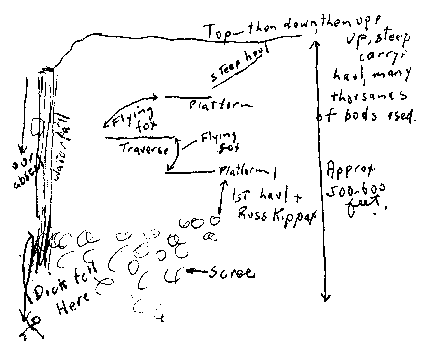 Top-then down, then up
up, steep
carry,
haul, many
thousands
of bods used.
Steep haul
Platform
Flying
fox
Traverse
Flying
fox
Platform 1
1st haul +
Russ Kippax
Approx
500-600
feet.
our
Waterfall
Dick fell
Here.
Scree